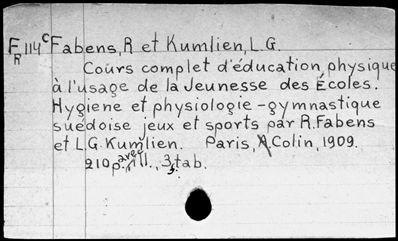 F R 114c Fabens, R et Kumlien, L.G.
Cours complet d'éducation physique
à l'usage de la Jeunesse des Écoles.
Hygiene et physiologie - gymnastique
suédoise jeux et sports par R. Fabens
et L.G. Kumlien. Paris, A. Colin, 1909.
210p. avec ill., 3 tab.